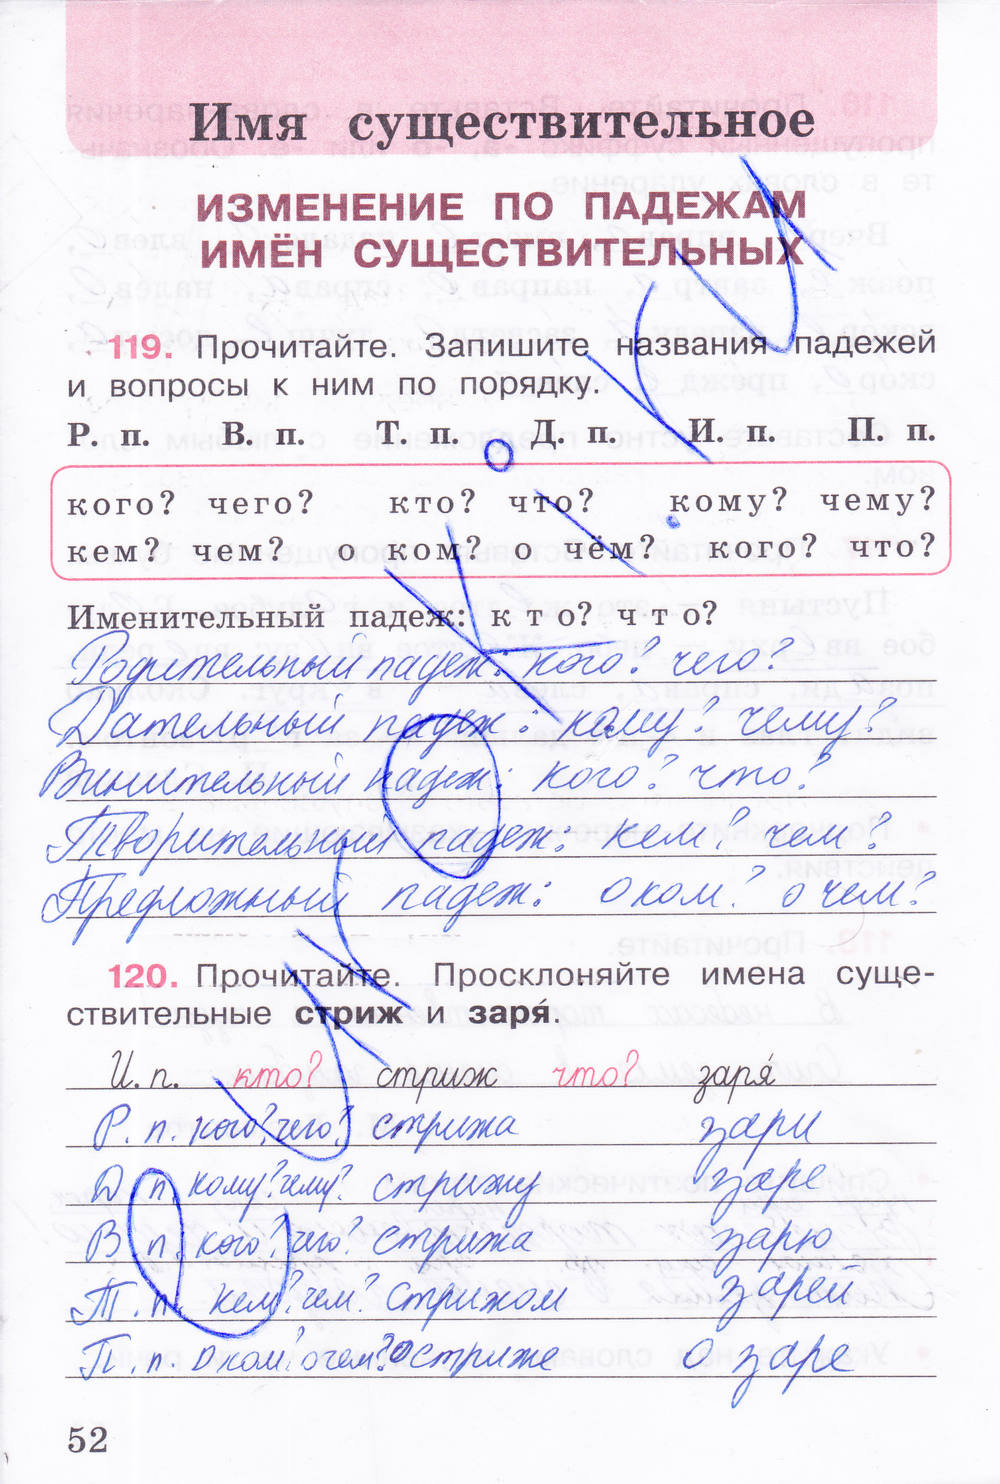 Имя существительное
ИЗМЕНЕНИЕ ПО ПАДЕЖАМ
ИМЁН СУЩЕСТВИТЕЛЬНЫХ
119. Прочитайте. Запишите названия падежей
и вопросы к ним по порядку.
Р. п. В. п. Т. п. Д. п. И. п. П. п.
кого? чего? кто? что? кому? чему?
кем? чем? о ком? о чём? кого? что?
Именительный падеж: кто? что?
Родительный падеж: кого? чего?
Дательный падеж: кому? чему?
Винительный падеж: кого? что?
Творительный падеж: кем? чем?
Предложный падеж: о ком? о чем?
120. Прочитайте. Просклоняйте имена суще-
ствительные стриж и заря́.
И. п. кто? стриж что? заря́
Р. п. кого? чего? стрижа зари
Д. п. кому? чему? стрижу заре
В. п. кого? чего? стрижа зарю
Т. п. кем? чем? стрижом зарей
П. п. О ком? о чем? о стриже о заре
52